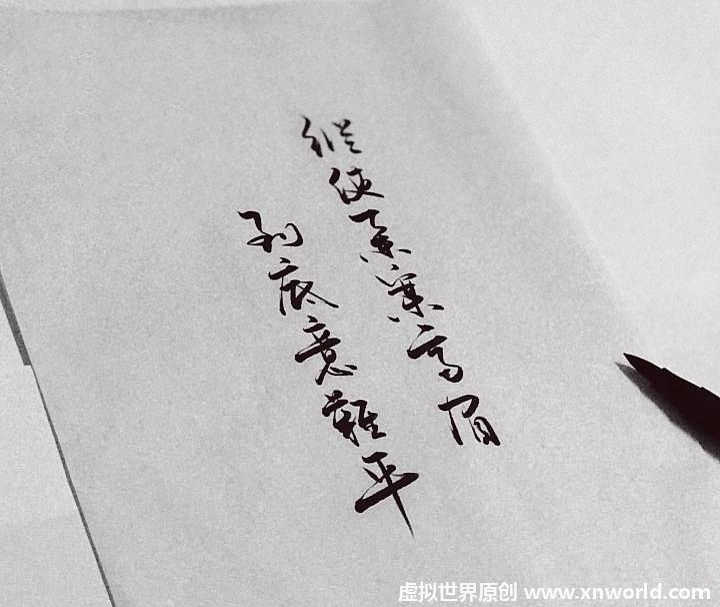 縱使舉案齊眉
到底意難平
虚拟世界原创 www.xnworld.com